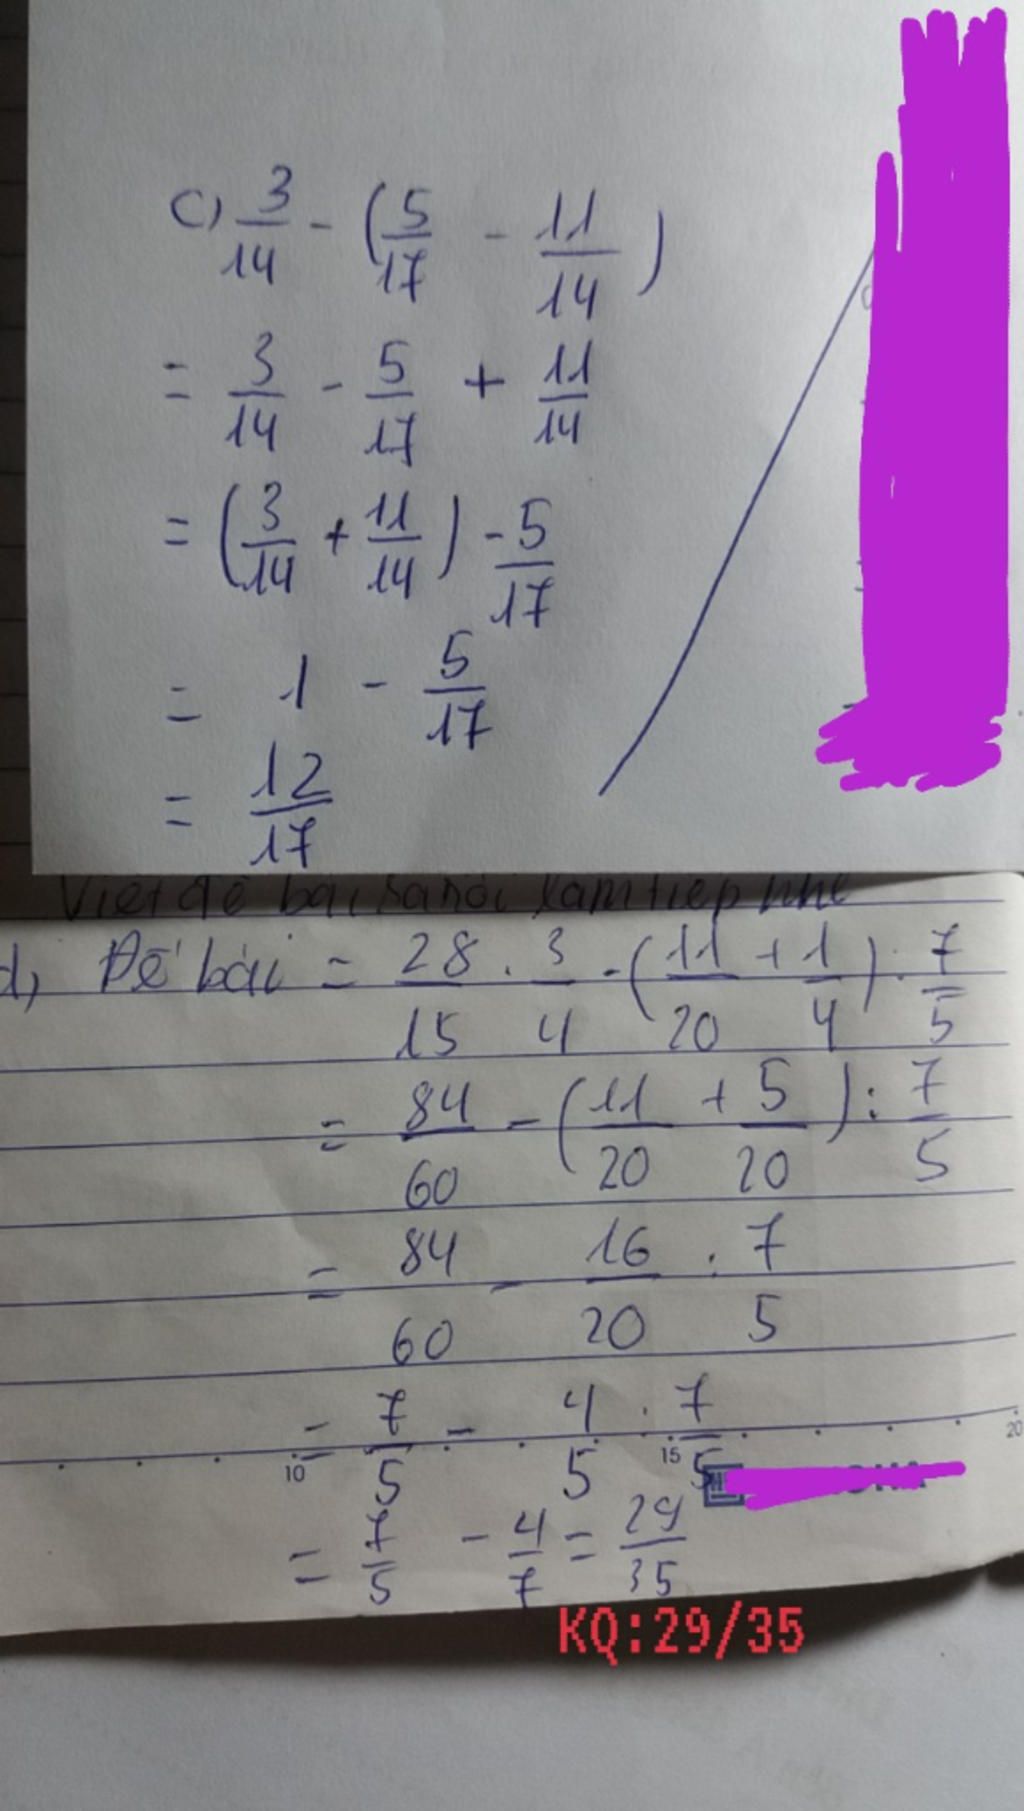 c) 3/14 - (5/17 - 11/14)
= 3/14 - 5/17 + 11/14
= (3/14 + 11/14) - 5/17
= 1 - 5/17
= 12/17
Viết đề bài ra rồi làm tiếp nhé
d, Đề bài = 28/15 . 3/4 - (11/20 + 1/4) : 7/5
= 84/60 - (11/20 + 5/20) : 7/5
= 84/60 - 16/20 : 7/5
= 7/5 - 4/5 : 7/5
10 15 20
= 7/5 - 4/7 = 29/35
KQ:29/35